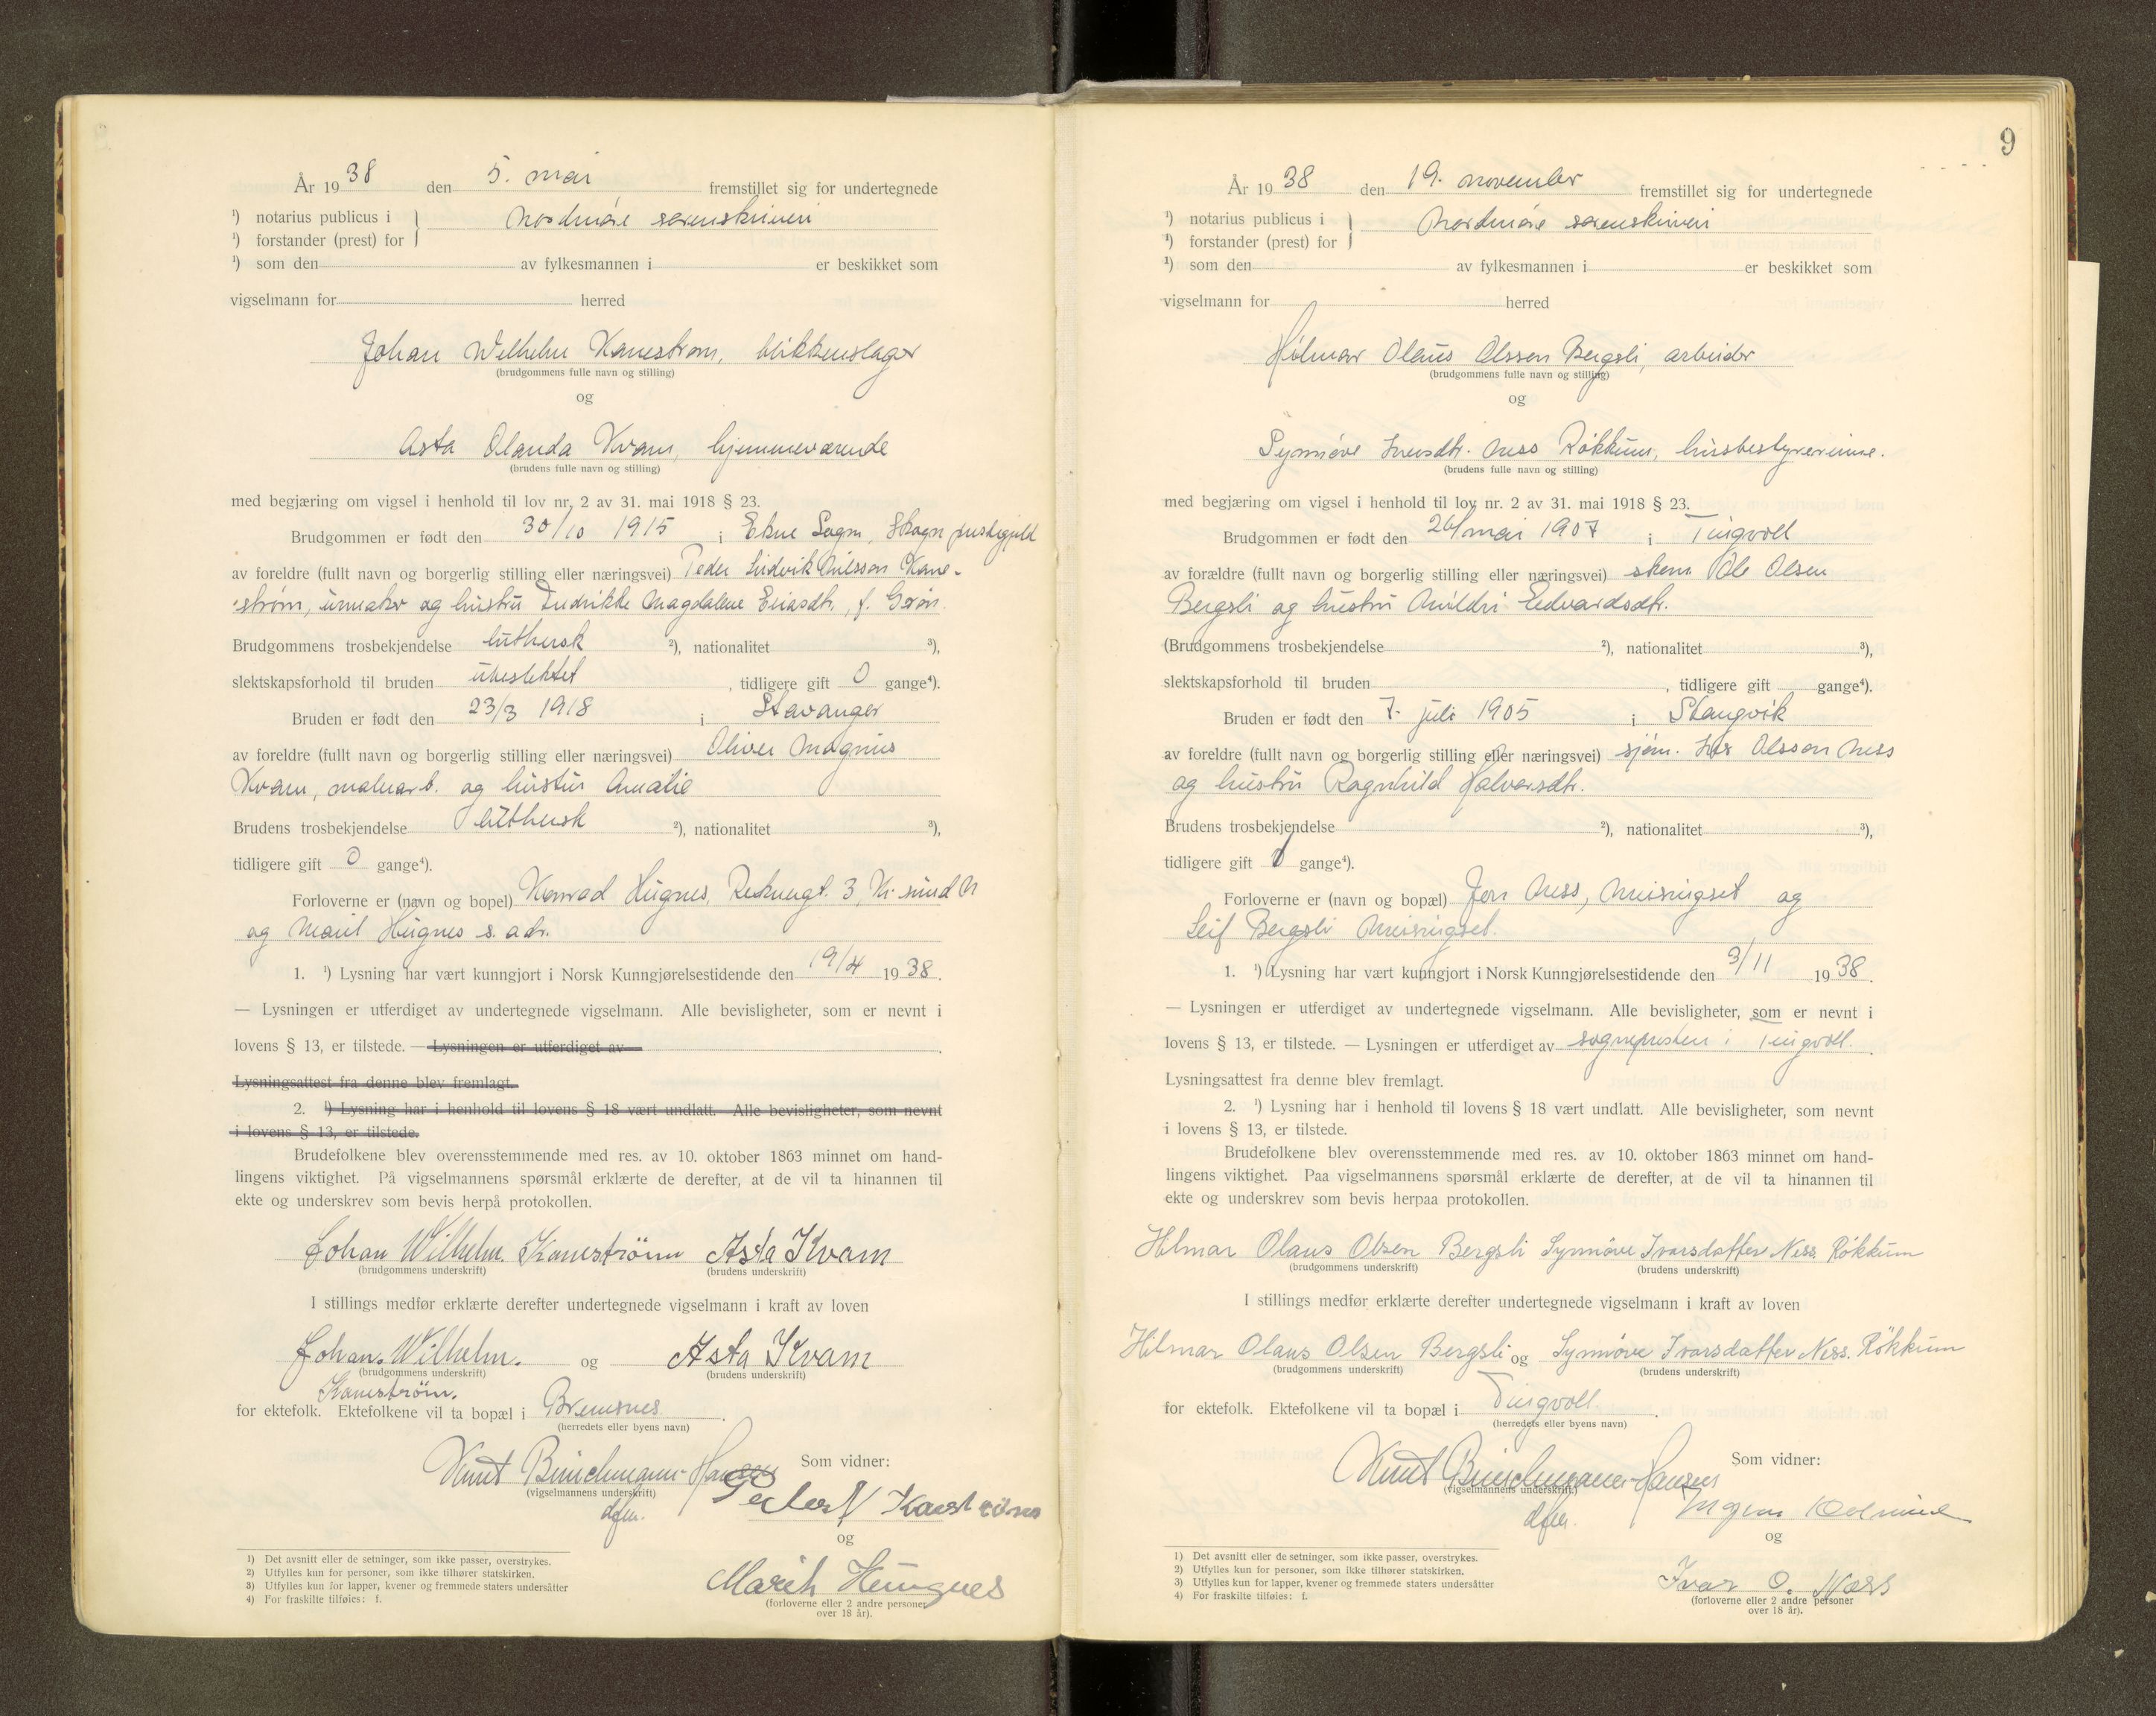 År 1938 den 5. mai fremstillet sig for undertegnede
¹) notarius publicus i } Nordmøre sorenskriveri
¹) forstander (prest) for
¹) som den av fylkesmannen i er beskikket som
vigselmann for herred
Johan Wilhelm Kanestrøm, blikkenslager
(brudgommens fulle navn og stilling)
og
Asta Olanda Kvam, hjemmeværende
(brudens fulle navn og stilling)
med begjæring om vigsel i henhold til lov nr. 2 av 31. mai 1918 § 23.
Brudgommen er født den 30/10 1915 i Ekne Sogn, Skogn prestegjeld
av foreldre (fullt navn og borgerlig stilling eller næringsvei) Peder Ludvik Nilsson Kane-
strøm, urmaker og hustru Magdalene Eliasdtr., f. Grøn.
Brudgommens trosbekjendelse luthersk ²), nationalitet ³),
slektskapsforhold til bruden ubeslektet , tidligere gift 0 gange⁴).
Bruden er født den 23/3 1918 i Stavanger
av foreldre (fullt navn og borgerlig stilling eller næringsvei) Oliver Magnus
Kvam, malerarb. og hustru Amalie
Brudens trosbekjendelse luthersk ²), nationalitet ³),
tidligere gift 0 gange⁴).
Forloverne er (navn og bopel) Konrad Hugnes, 3, Kr.sund N
og Marit Hugnes s. adr.
1. ¹) Lysning har vært kunngjort i Norsk Kunngjørelsestidende den 19/4 1938.
— Lysningen er utferdiget av undertegnede vigselmann. Alle bevisligheter, som er nevnt i
lovens § 13, er tilstede. — Lysningen er utferdiget av .
Lysningsattest fra denne blev fremlagt.
2. ¹) Lysning har i henhold til lovens § 18 vært undlatt. Alle bevisligheter, som nevnt
i lovens § 13, er tilstede.
Brudefolkene blev overensstemmende med res. av 10. oktober 1863 minnet om hand-
lingens viktighet. På vigselmannens spørsmål erklærte de derefter, at de vil ta hinannen til
ekte og underskrev som bevis herpå protokollen.
Johan Wilhelm Kanestrøm Asta Kvam
(brudgommens underskrift) (brudens underskrift)
I stillings medfør erklærte derefter undertegnede vigselmann i kraft av loven
Johan Wilhelm. og Asta Kvam
(brudgommens underskrift) (brudens underskrift)
Kanestrøm.
for ektefolk. Ektefolkene vil ta bopæl i Bremsnes.
(herredets eller byens navn)
Knut Brinchmann-Hansen Som vidner:
(vigselmannens underskrift) Peder Kanestrøm
dfm.
og
Marit Heugnes
(forloverne eller 2 andre personer
over 18 år).
1) Det avsnitt eller de setninger, som ikke passer, overstrykes.
2) Utfylles kun for personer, som ikke tilhører statskirken.
3) Utfylles kun for lapper, kvener og fremmede staters undersåtter
4) For fraskilte tilføies: f.
9
År 1938 den 19. november fremstillet sig for undertegnede
¹) notarius publicus i } Nordmøre sorenskriveri
¹) forstander (prest) for
¹) som den av fylkesmannen i er beskikket som
vigselmann for herred
Hilmar Olaus Olssen Bergsli, arbeider
(brudgommens fulle navn og stilling)
og
Synnøve Ivarsdtr. Ness Røkkum, husbestyrerinne.
(brudens fulle navn og stilling)
med begjæring om vigsel i henhold til lov nr. 2 av 31. mai 1918 § 23.
Brudgommen er født den 26/mai 1907 i Tingvoll
av forældre (fullt navn og borgerlig stilling eller næringsvei) Ole Olsen
Bergsli og hustru Edvardsdtr.
(Brudgommens trosbekjendelse ²), nationalitet ³),
slektskapsforhold til bruden , tidligere gift gange⁴).
Bruden er født den 7. juli 1905 i Stangvik
av foreldre (fullt navn og borgerlig stilling eller næringsvei) sjøm. Ivar Olsson Ness
og hustru Ragnhild Halvorsdtr.
Brudens trosbekjendelse ²), nationalitet ³),
tidligere gift 1 gange⁴).
Forloverne er (navn og bopæl) Jon Ness, Meisingset og
Leif Bergsli Meisingset.
1. ¹) Lysning har vært kunngjort i Norsk Kunngjørelsestidende den 3/11 1938.
— Lysningen er utferdiget av undertegnede vigselmann. Alle bevisligheter, som er nevnt i
lovens § 13, er tilstede. — Lysningen er utferdiget av sogneprestен i Tingvoll.
Lysningsattest fra denne blev fremlagt.
2. ¹) Lysning har i henhold til lovens § 18 vært undlatt. Alle bevisligheter, som nevnt
i lovens § 13, er tilstede.
Brudefolkene blev overensstemmende med res. av 10. oktober 1863 minnet om hand-
lingens viktighet. Paa vigselmannens spørsmål erklærte de derefter, at de vil ta hinannen til
ekte og underskrev som bevis herpaa protokollen.
Hilmar Olaus Olsen Bergsli Synnøve Ivarsdatter Ness Røkkum
(brudgommens underskrift) (brudens underskrift)
I stillings medfør erklærte derefter undertegnede vigselmann i kraft av loven
Hilmar Olaus Olsen Bergsli og Synnøve Ivarsdatter Ness. Røkkum
(brudgommens underskrift) (brudens underskrift)
for ektefolk. Ektefolkene vil ta bopæl i Tingvoll.
(herredets eller byens navn)
Knut Brinchmann-Hansen Som vidner:
(vigselmannens underskrift)
dfm.
og
Ivar O. Næss
(forloverne eller 2 andre personer
over 18 år).
1) Det avsnitt eller de setninger, som ikke passer, overstrykes.
2) Utfylles kun for personer, som ikke tilhører statskirken.
3) Utfylles kun for lapper, kvener og fremmede staters undersåtter
4) For fraskilte tilføies: f.